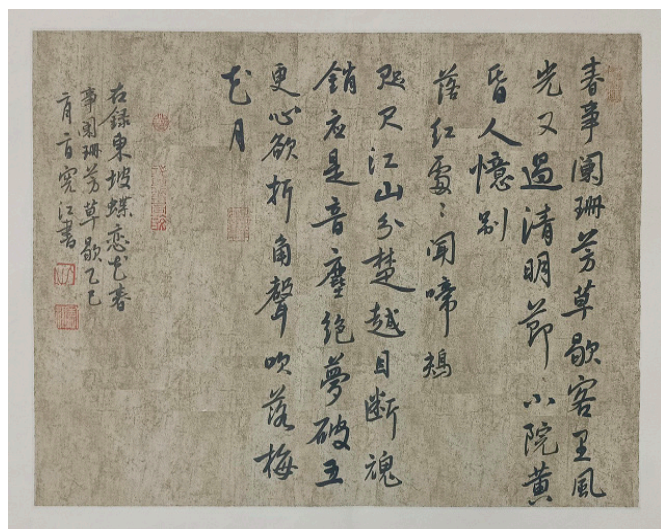 春事阑珊芳草歇客里風
光又過清明節小院黄
昏人憶别
落紅處〻聞啼鴂
咫尺江山分楚越目断魂
銷应是音塵绝夢破五
更心欲折角聲吹落梅
花月
右録東坡蝶恋花春
事阑珊芳草歇乙巳
江書